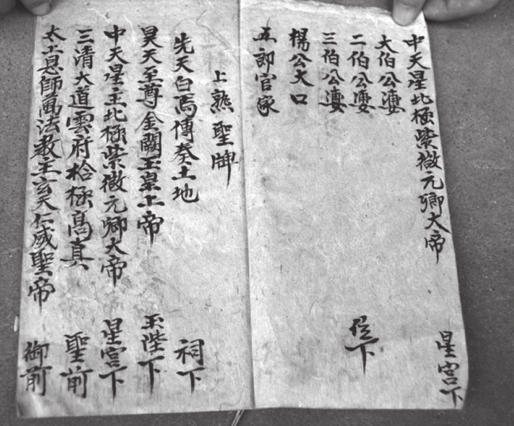 中天星北極紫微元卿大帝 星宮下
大伯公婆
二伯公婆
三伯公婆 位下
楊公大口
五郎官家
上熟聖牌
先天白馬傳奏土地 祠下
昊天至尊金闕玉皇上帝 玉陛下
中天星主北極紫微元卿大帝 星宮下
三清大道雲府枱極高真 聖前
太上恩師萬法教主玄天仁威聖帝 御前